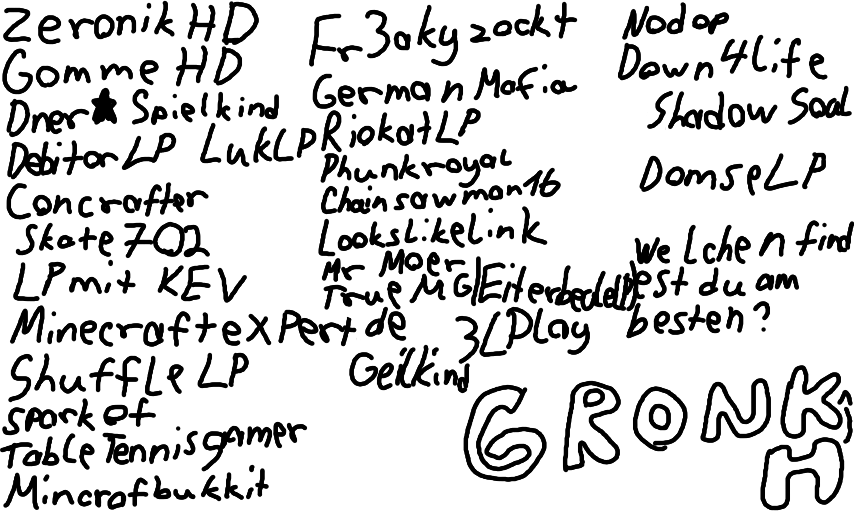 Zeronik HD
Gomme HD
Dner★Spielkind
DebitorLP LukLP
Concrafter
Skate702
LPmit KEV
Minecraftexpert de
ShuffleLP
sparkof
TableTennisgamer
Mincrafbukkit
Fr3akyzockt
German Mafia
RiokatLP
Phunkroyal
Chainsawman16
Lookslikelink
Mr Moer
True MG/
3LPlay
Geilkind
Nodop
Down4life
Shadow Soal
DomseLP
Welchen find
est du am
besten?
GRONKH